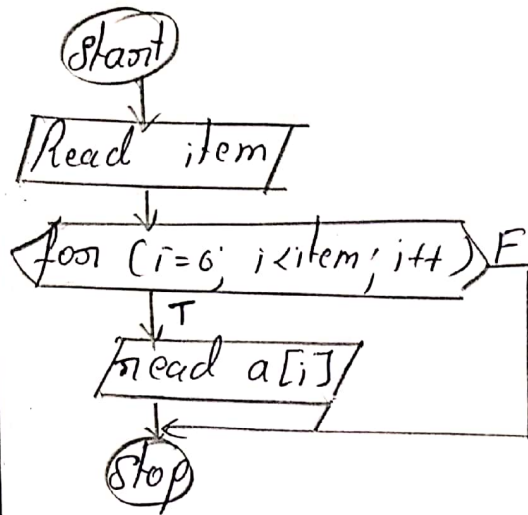 Start
Read item
for (i=0; i<item; i++) F
T
read a[i]
Stop